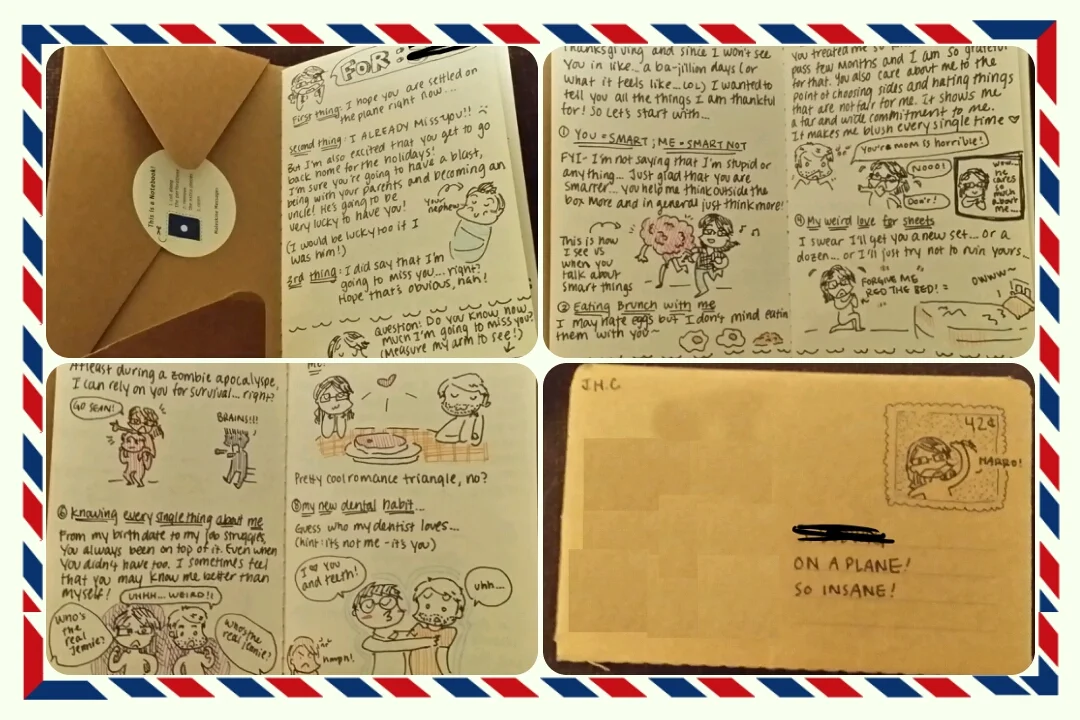 This is a Notebook!
FOR:
First thing: I hope you are settled on
the plane right now...
second thing: I ALREADY MISS YOU!! :(
But I'm also excited that you get to go
back home for the holidays!
I'm sure you're going to have a blast,
being with your parents and becoming an
uncle! He's going to be
very lucky to have you!
(I would be lucky too if I
was him!)
Your nephew
3rd thing: I did say that I'm
going to miss you... right?
Hope that's obvious, nah!
Question: Do you know how
much I'm going to miss you?
(Measure my arm to see!)
Thanksgiving and since I won't see
you in like... a ba-jillion days (or
what it feels like...LOL) I wanted to
tell you all the things I am thankful
for! So Let's start with...
① YOU = SMART ; ME = SMART NOT
FYI - I'm not saying that I'm stupid or
anything... Just glad that you are
smarter... you help me think outside the
box more and in general just think more!
This is how
I see us
when you
talk about
smart things
② Eating Brunch with me
I may hate eggs but I don't mind eatin
them with you~
you treated me so
pass few months and I am so grateful
for that. You also care about me to the
point of choosing sides and hating things
that are not fair for me. It shows me
a far and wide commitment to me.
It makes me blush every single time ♡
You're a mom is horrible!
Nooo!
Don't!
wow...
he
cares
so
much
about
me...
④ My weird love for sheets
I swear I'll get you a new set... or a
dozen... or I'll just try not to ruin yours...
FORGIVE ME
OWWW~
At least during a zombie apocalyspe,
I can rely on you for survival... right?
GO SEAN!
BRAINS!!!
⑥ Knowing every single thing about me
From my birth date to my job struggles,
You always been on top of it. Even when
you didn't have too. I sometimes feel
that you may know me better than
myself!
UHHH... WEIRD!!
Who's
the
real
Jennie?
Who's the
real Jennie?
me!
Pretty cool romance triangle, no?
⑧ my new dental habit...
Guess who my dentist loves...
(hint: it's not me - it's you)
I ♥ You
and teeth!
uhh...
hmph!
J.H.C
42¢
MARRO!
ON A PLANE!
SO INSANE!